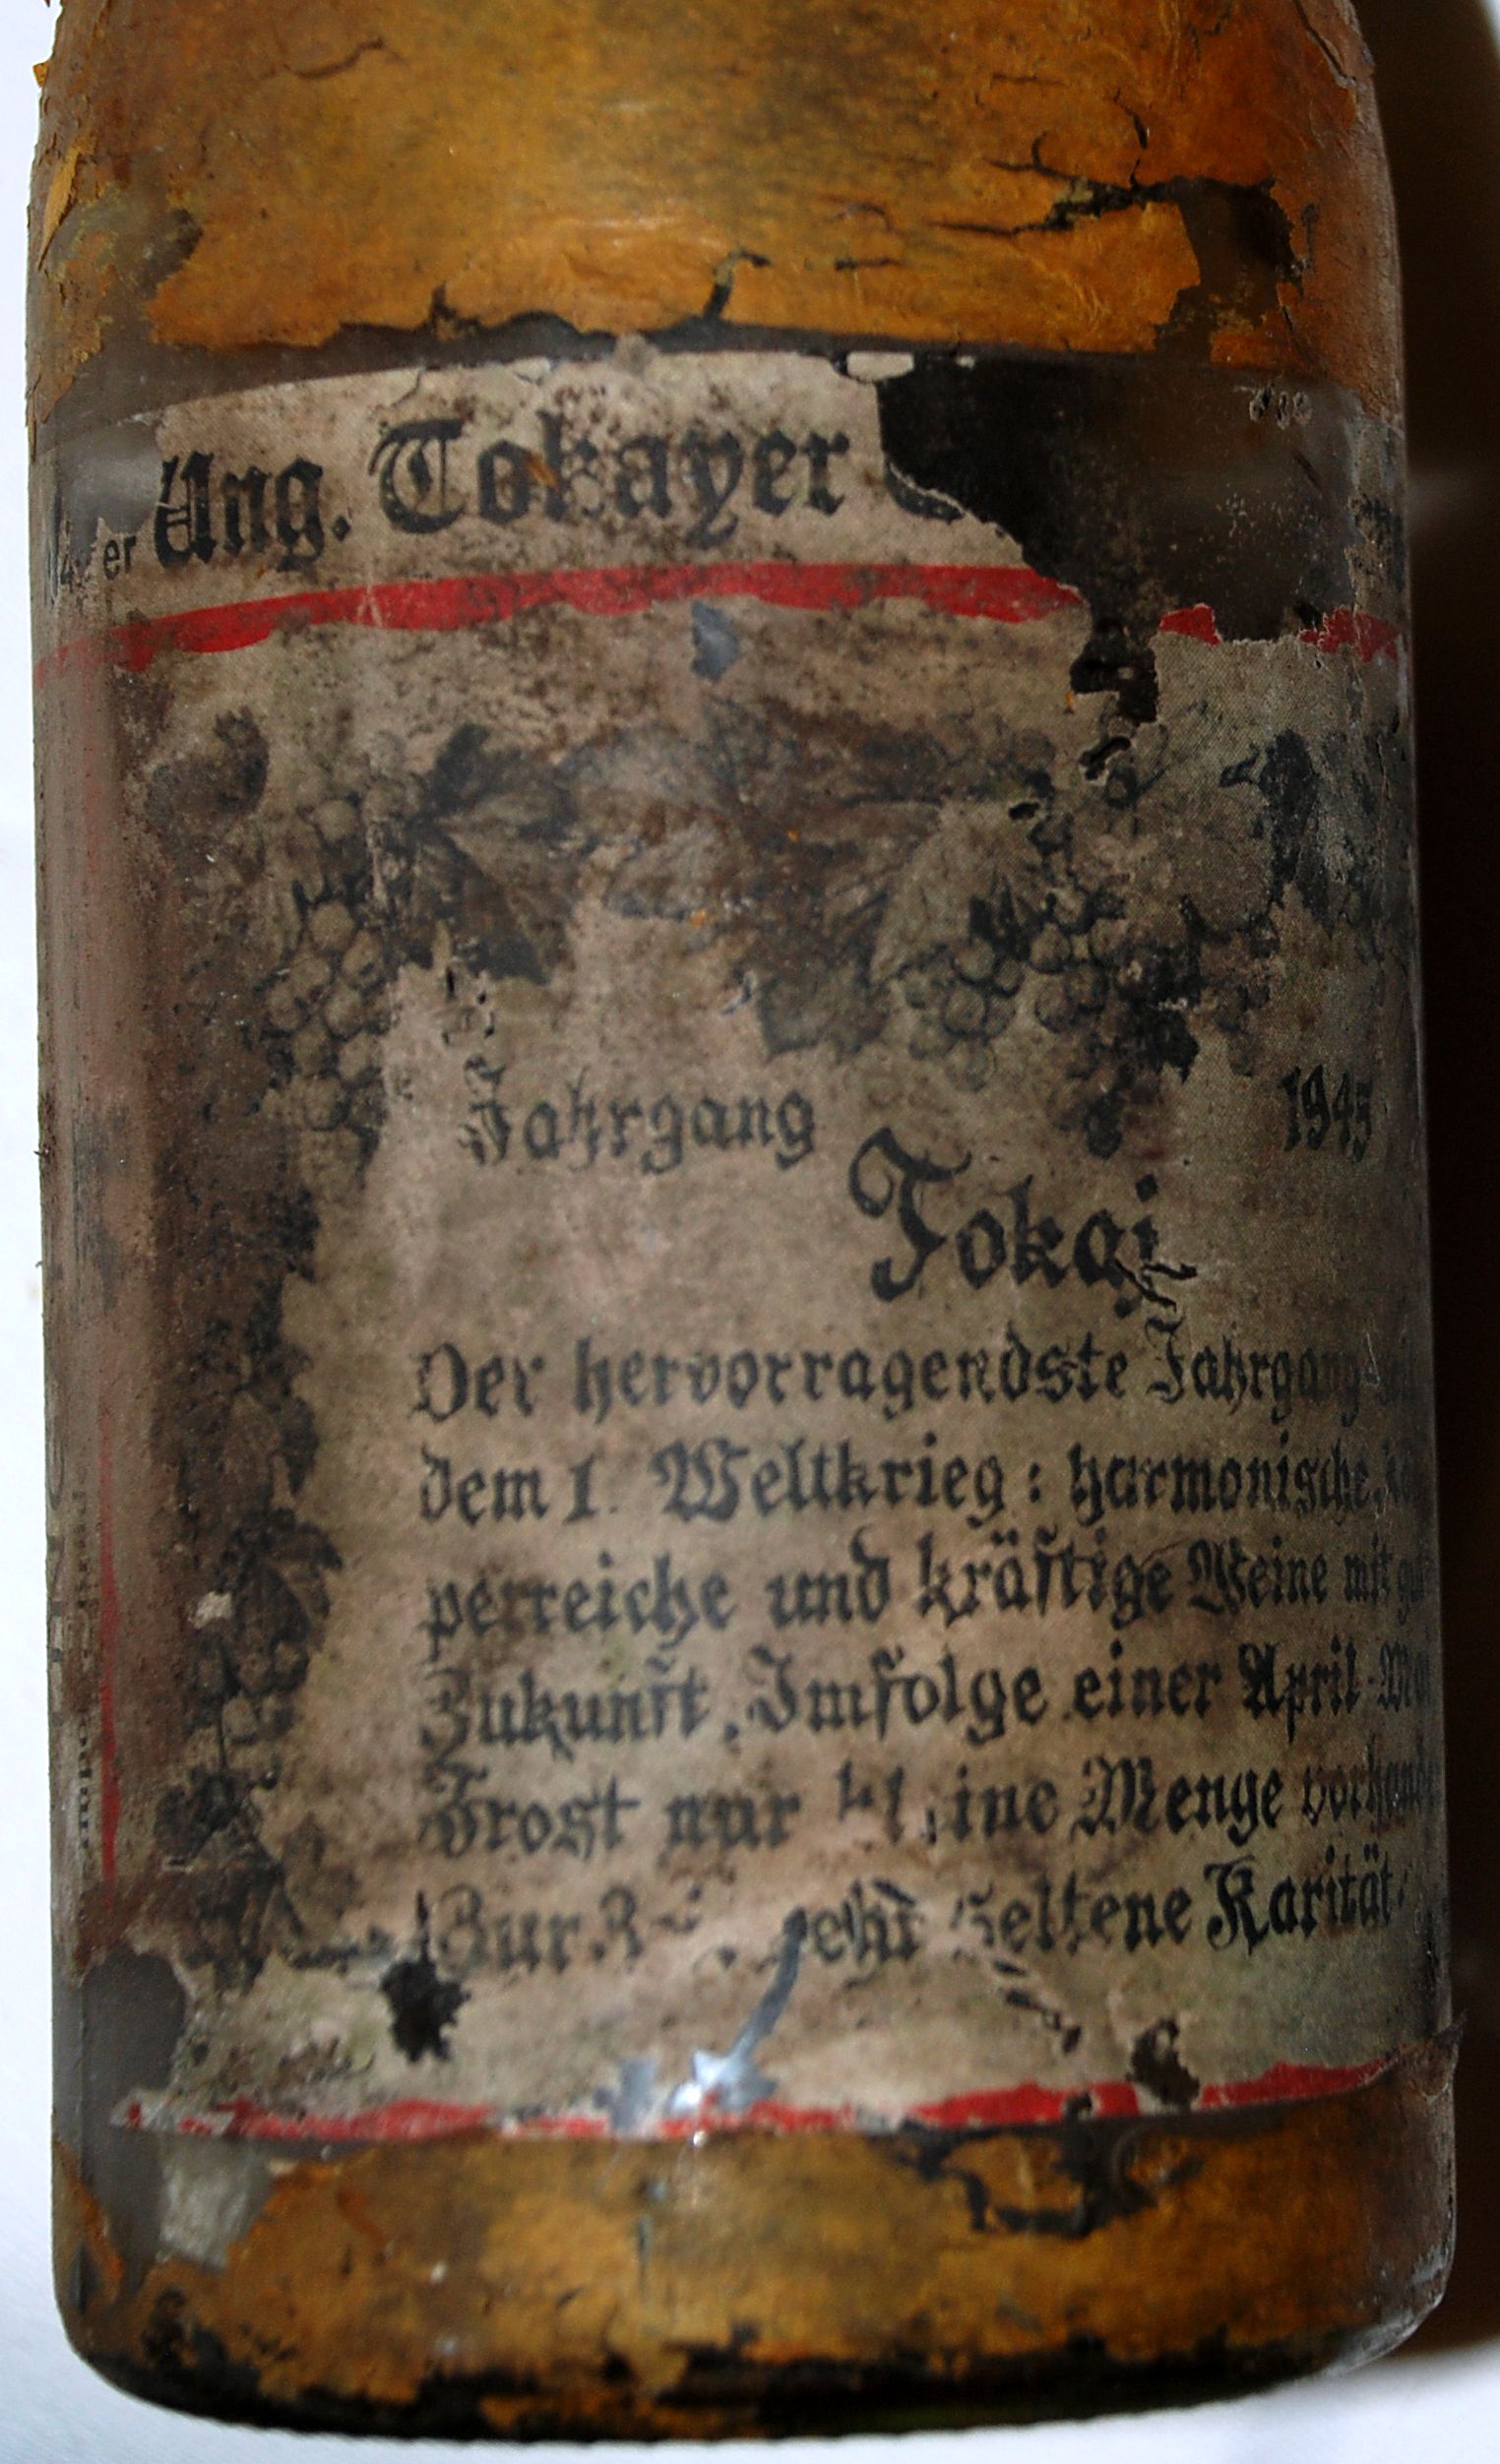 er Ung. Tokayer
Jahrgang 1945
Tokaj
Der hervorragendste Jahrgang
dem 1. Weltkrieg: harmonische,
perreiche und kräftige Weine mit
Zukunft. Imfolge einer April-
Frost nur kleine Menge
Zur seltene Rarität